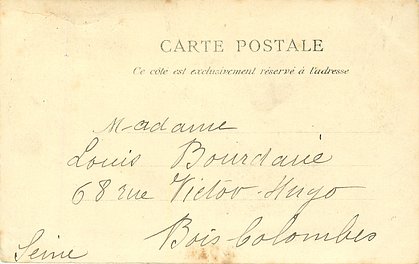 CARTE POSTALE
Ce côté est exclusivement réservé à l'adresse
Madame
Louis Bourdané
68 rue Victor-Hugo
Bois Colombes
Seine